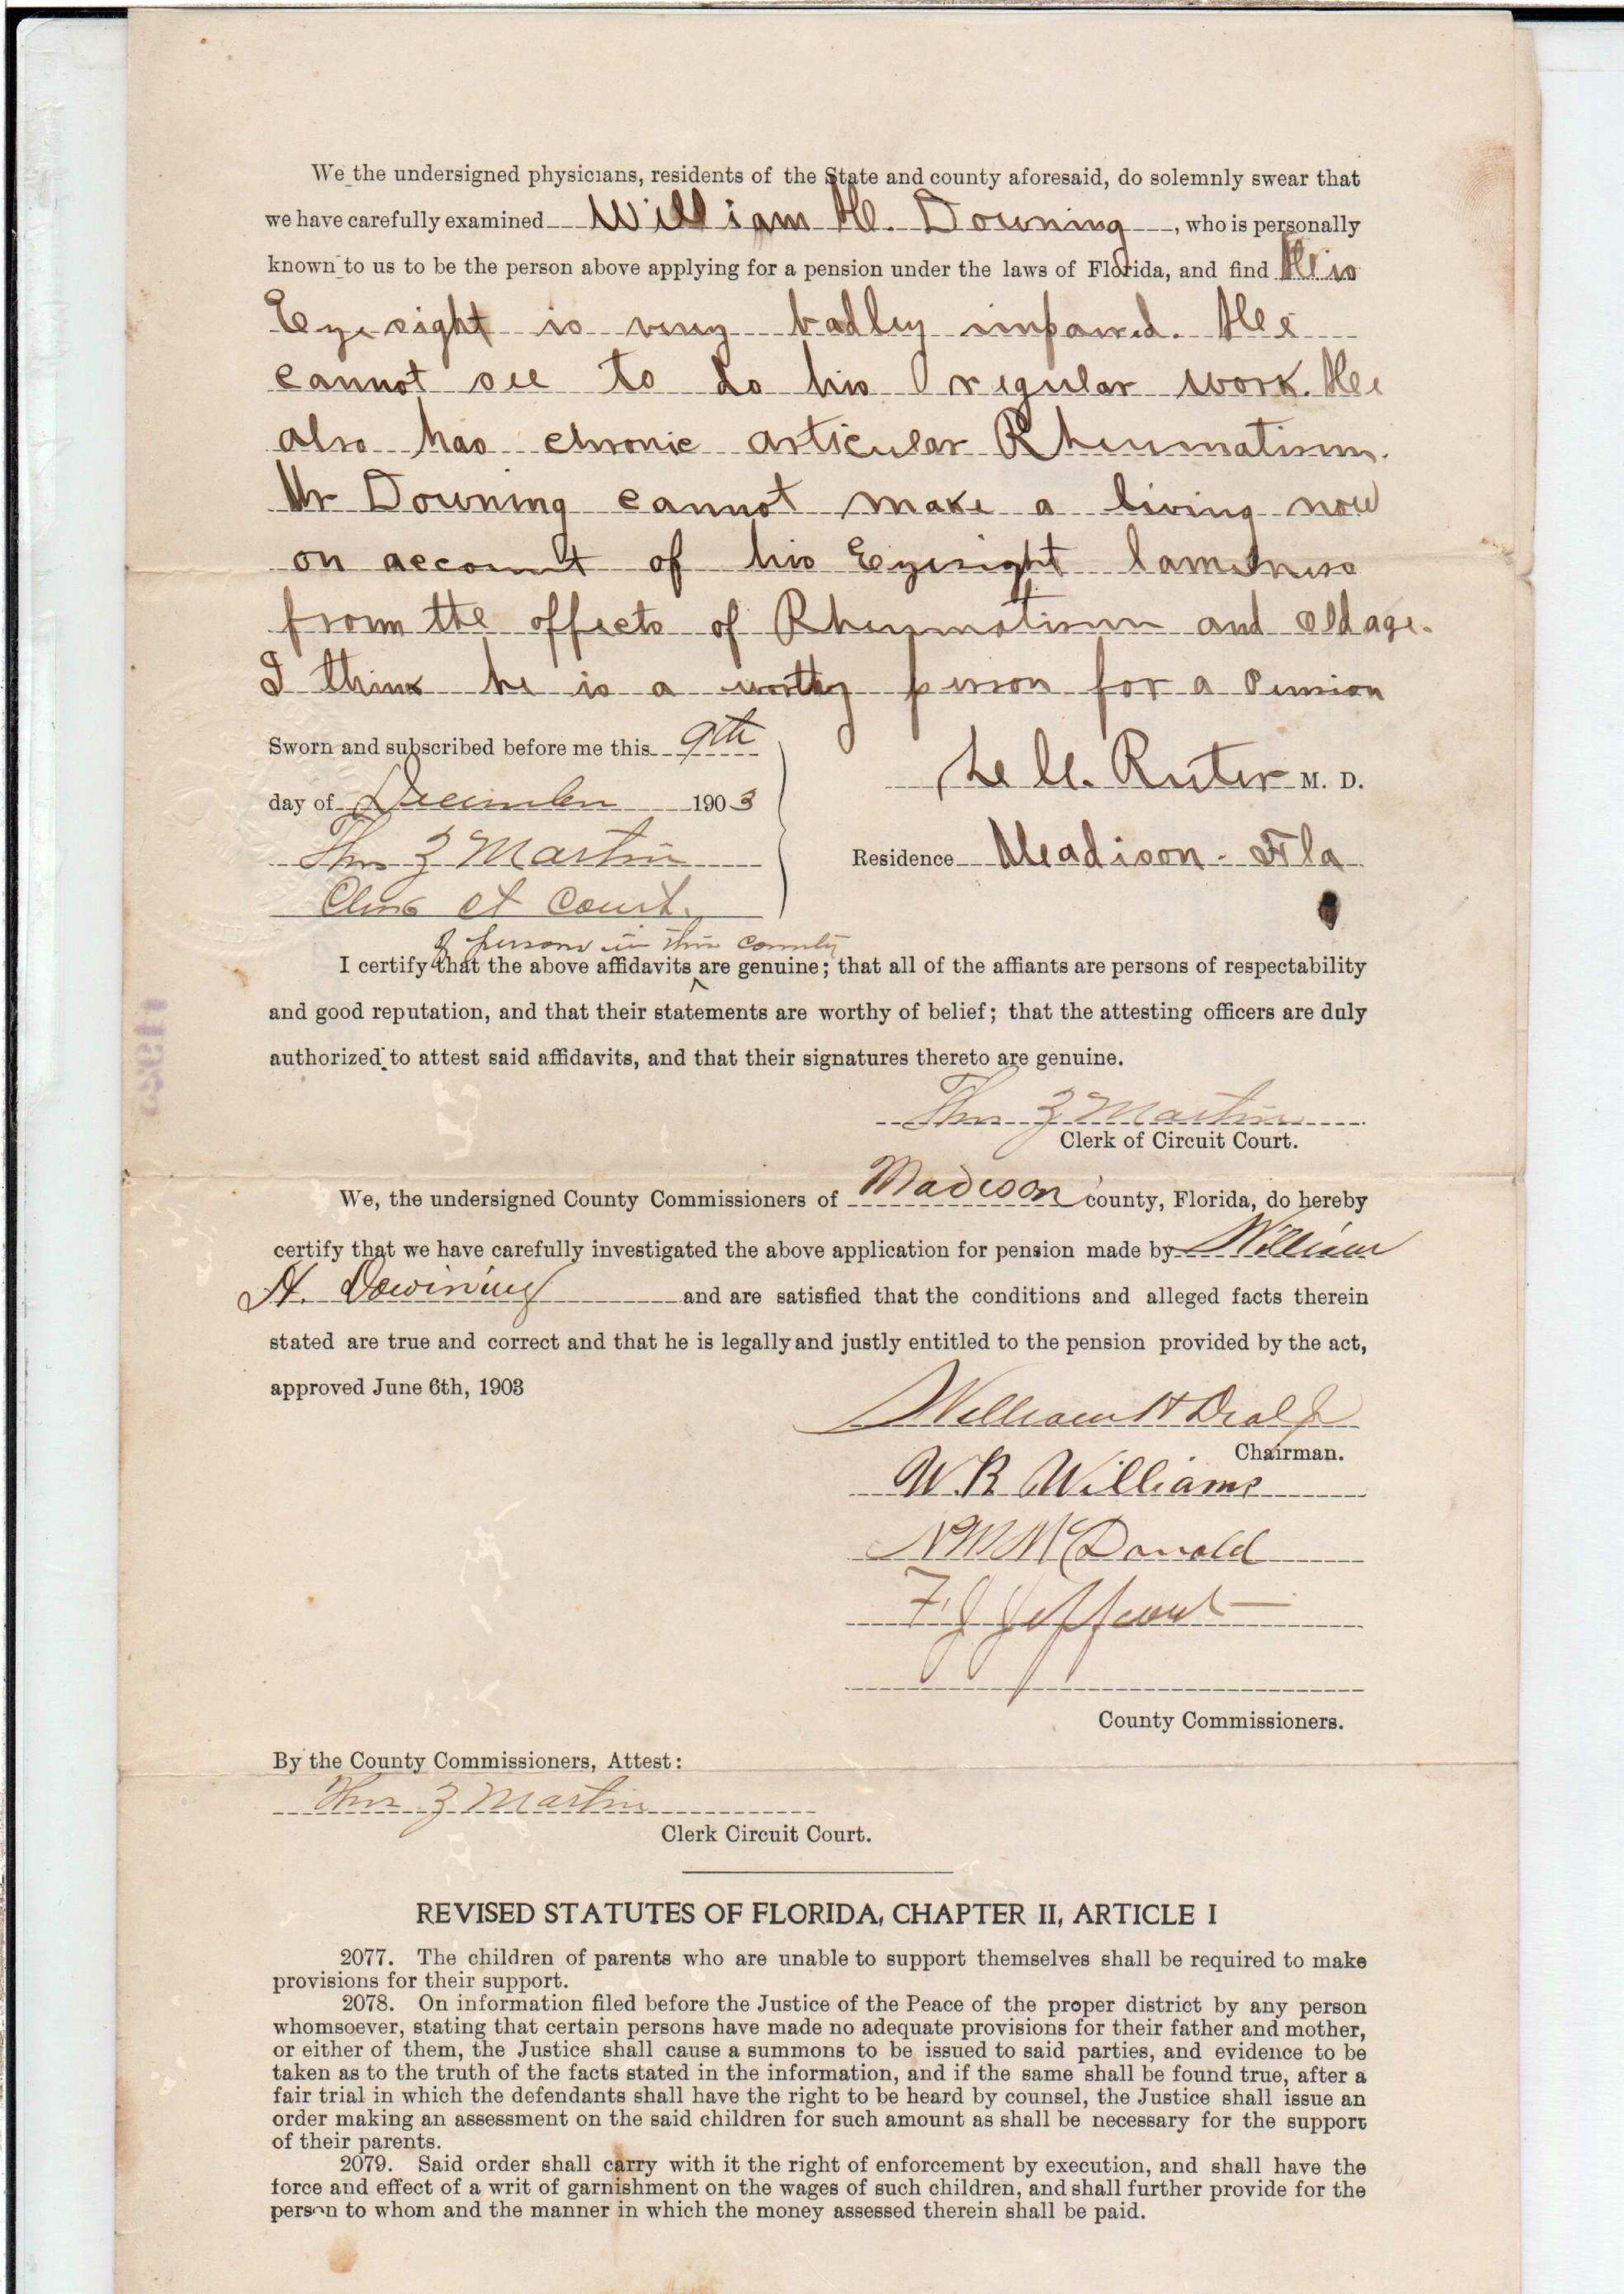 We the undersigned physicians, residents of the State and county aforesaid, do solemnly swear that
we have carefully examined William H. Downing, who is personally
known to us to be the person above applying for a pension under the laws of Florida, and find His
Eyesight is very badley impared. He
cannot see to do his regular work. He
also has chronic articular Rheumatism.
Mr Downing cannot make a living now
on account of his Eyesight lameness
from the effects of Rheumatism and old age.
I think he is a worthy person for a Pension
Sworn and subscribed before me this 9th
day of December 1903
Thos Z Martin
Clerk Ct Court.
M. D.
Residence Madison - Fla
of persons in this county
I certify that the above affidavits are genuine; that all of the affiants are persons of respectability
and good reputation, and that their statements are worthy of belief; that the attesting officers are duly
authorized to attest said affidavits, and that their signatures thereto are genuine.
Thos Z Martin
Clerk of Circuit Court.
We, the undersigned County Commissioners of Madison county, Florida, do hereby
certify that we have carefully investigated the above application for pension made by William
H. Downing and are satisfied that the conditions and alleged facts therein
stated are true and correct and that he is legally and justly entitled to the pension provided by the act,
approved June 6th, 1903
William H Dial Jr
Chairman.
W. R Williams
N M McDonald
F. J
County Commissioners.
By the County Commissioners, Attest:
Thos Z Martin
Clerk Circuit Court.
REVISED STATUTES OF FLORIDA, CHAPTER II, ARTICLE I
2077. The children of parents who are unable to support themselves shall be required to make
provisions for their support.
2078. On information filed before the Justice of the Peace of the proper district by any person
whomsoever, stating that certain persons have made no adequate provisions for their father and mother,
or either of them, the Justice shall cause a summons to be issued to said parties, and evidence to be
taken as to the truth of the facts stated in the information, and if the same shall be found true, after a
fair trial in which the defendants shall have the right to be heard by counsel, the Justice shall issue an
order making an assessment on the said children for such amount as shall be necessary for the support
of their parents.
2079. Said order shall carry with it the right of enforcement by execution, and shall have the
force and effect of a writ of garnishment on the wages of such children, and shall further provide for the
person to whom and the manner in which the money assessed therein shall be paid.